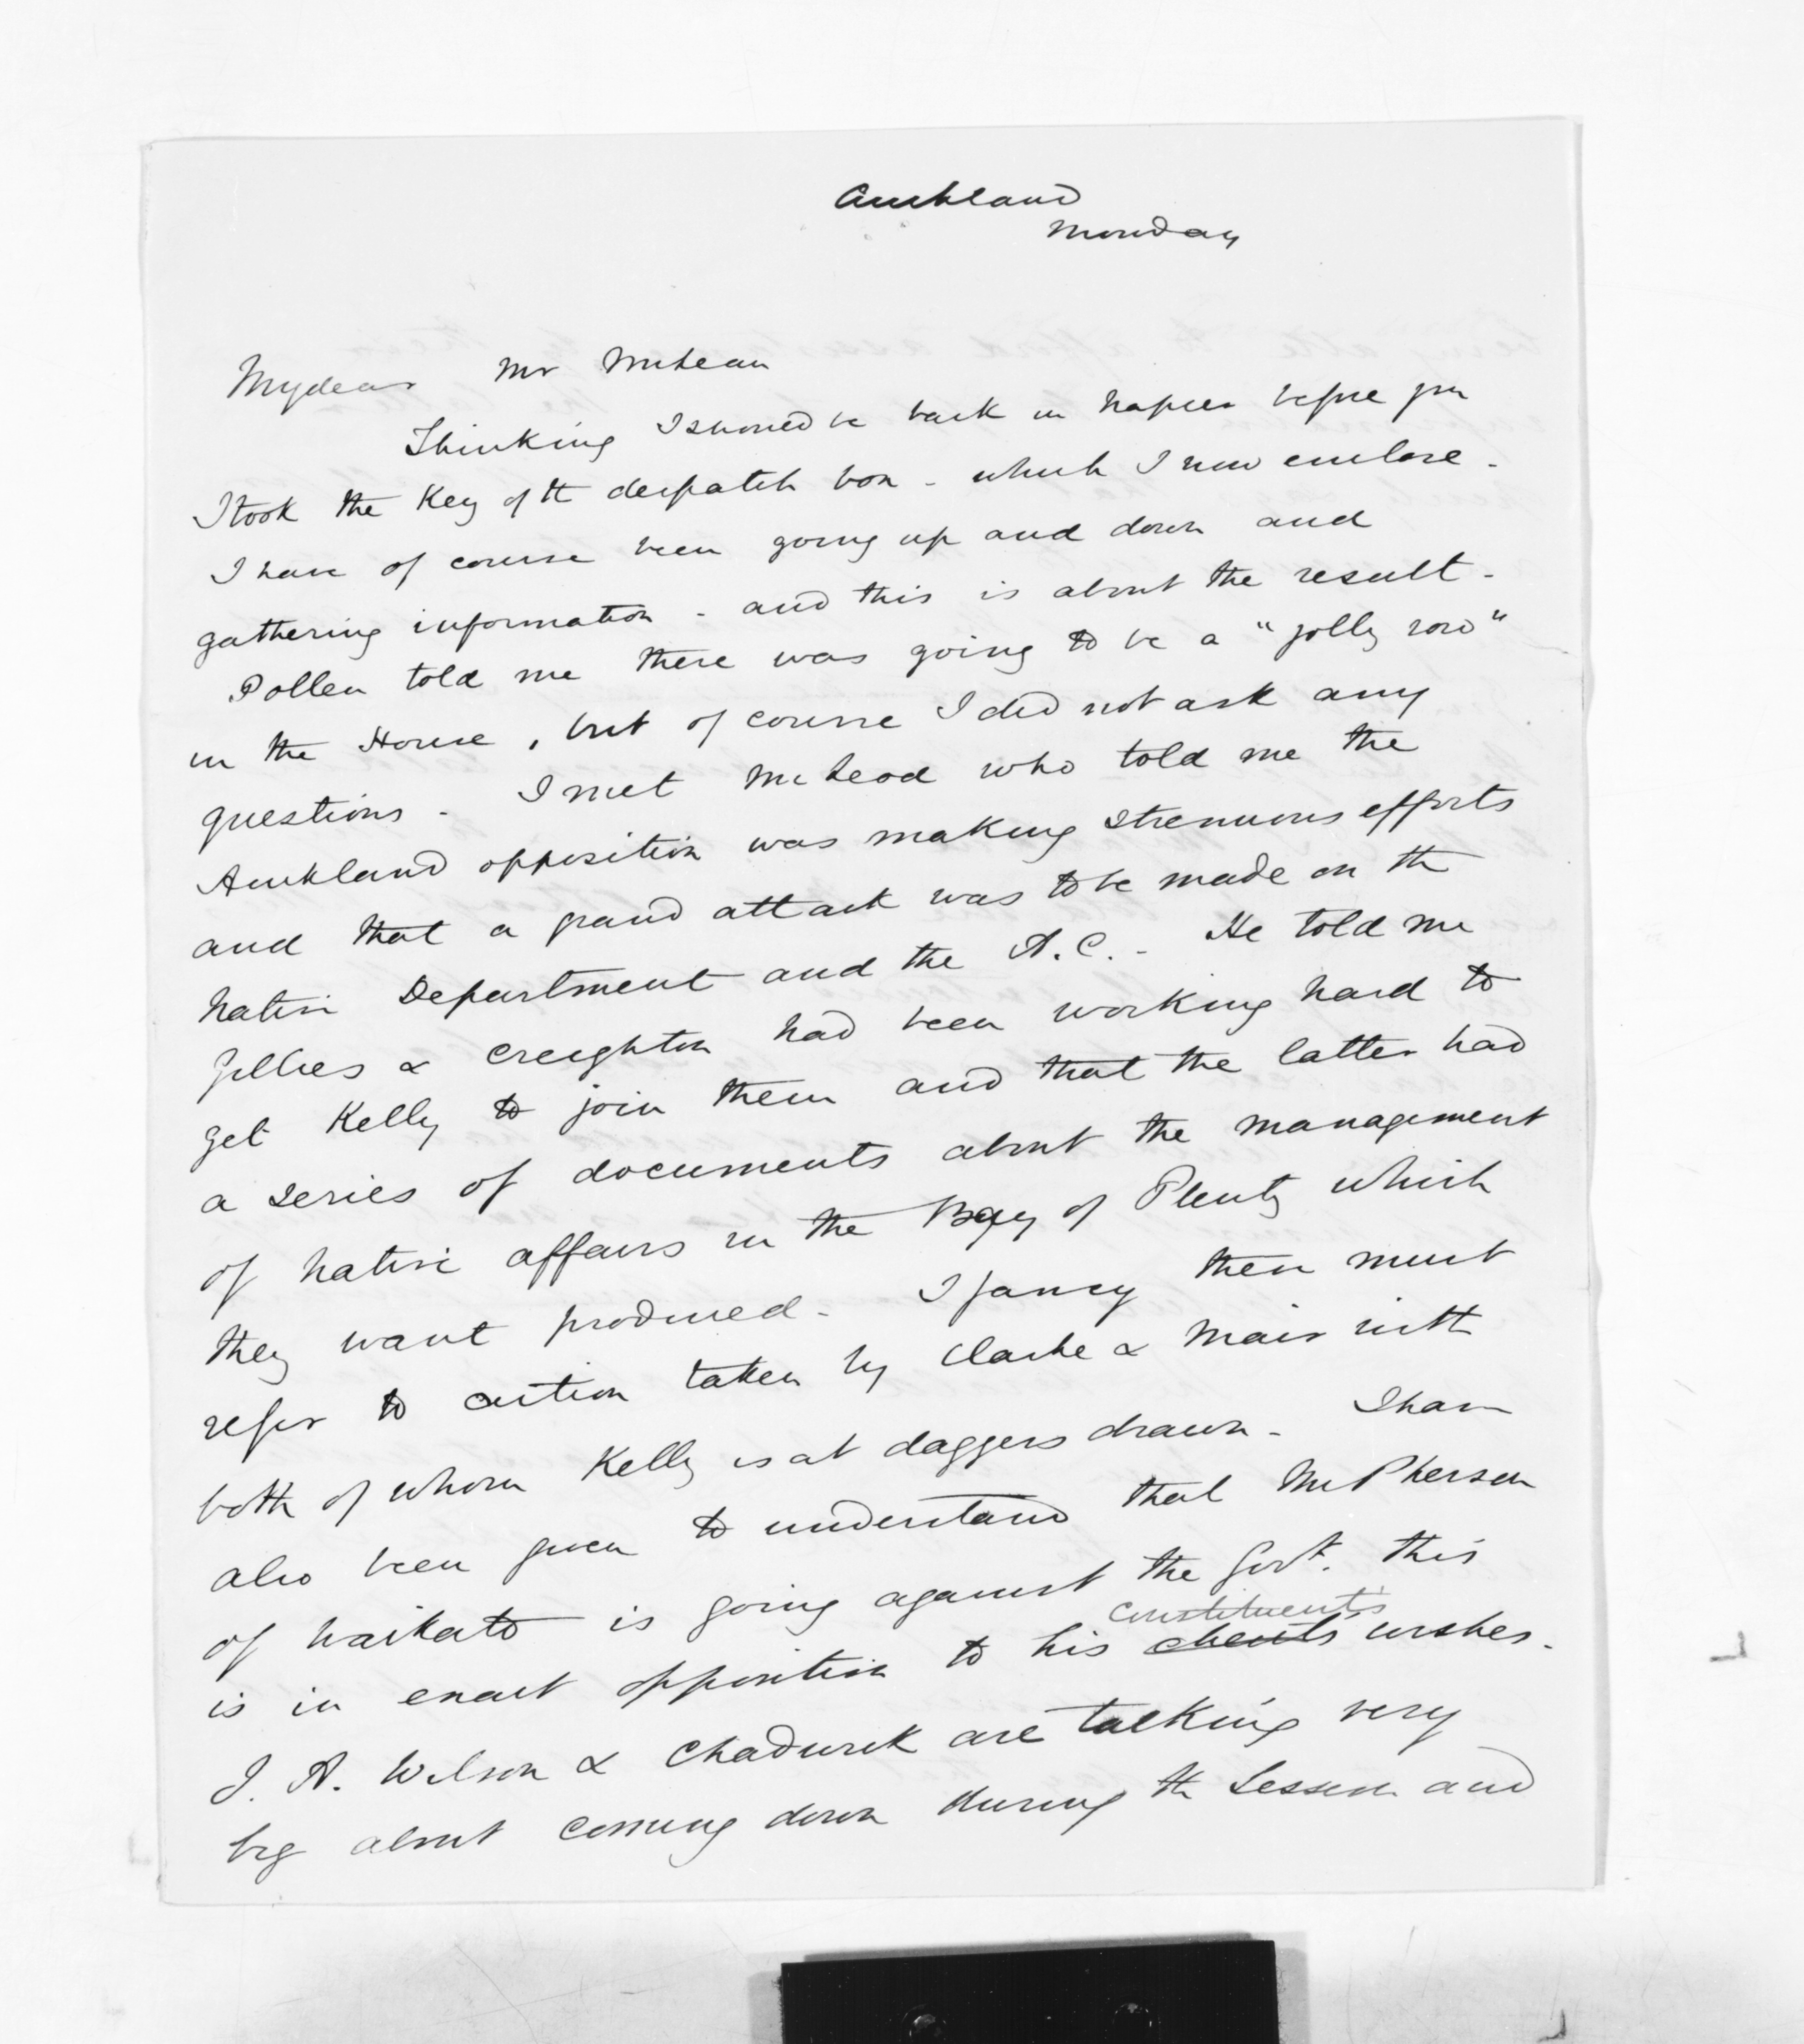 Auckland
Monday
My dear Mr McLean
Thinking I should be back in Napier before you
I took the Key of the despatch box - which I now enclose -
I have of course been going up and down and
gathering information - and this is about the result -
Pollen told me there was going to be a "jolly row"
in the House, but of course I did not ask any
questions - I met McLeod who told me the
Auckland opposition was making strenuous efforts
and that a grand attack was to be made on the
Native Department and the A.C. - He told me
Gillies & Creighton had been working hard to
get Kelly to join them and that the latter had
a series of documents about the management
of Native affairs in the Bay of Plenty which
they want produced - I fancy these must
refer to action taken by Clarke & Mair with
both of whom Kelly is at daggers drawn - I have
also been given to understand that McPherson
of Waikato is going against the Govt. this
is in exact opposition to his clients constituents' wishes -
J. A. Wilson & Chadwick are talking very
big about coming down during the Session and